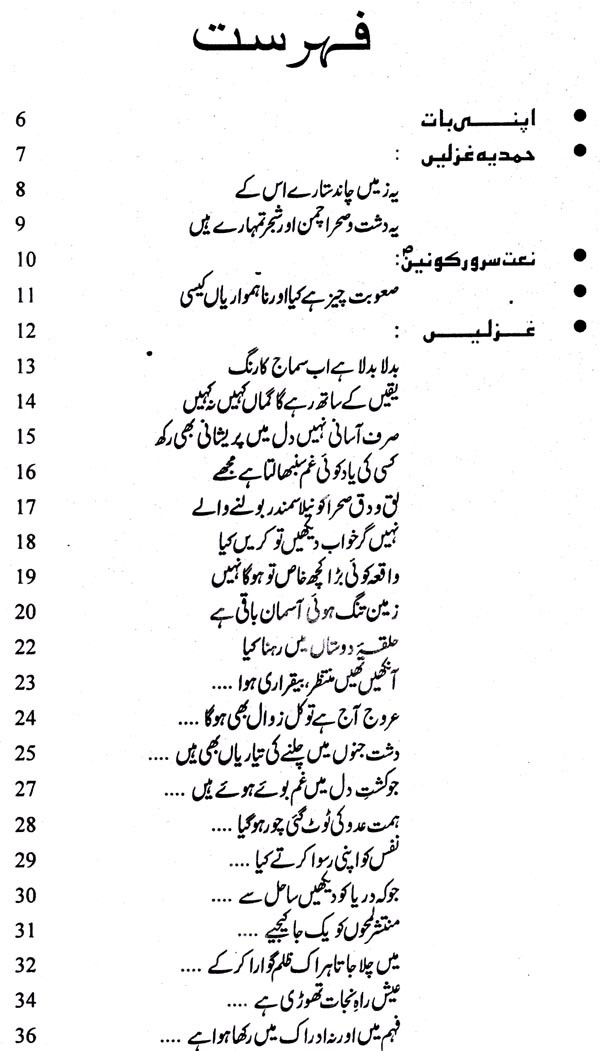 فہرست
● اپنی بات 6
● حمدیہ غزلیں : 7
یہ زمیں چاند ستارے اس کے 8
یہ دشت و صحرا چمن اور شجر تمہارے ہیں 9
● نعت سرور کونینؐ: 10
● صعوبت چیز ہے کیا اور ناہمواریاں کیسی 11
● غزلیں : 12
بدلا بدلا ہے اب سماج کا رنگ 13
یقیں کے ساتھ رہے گا گماں کہیں نہ کہیں 14
صرف آسانی نہیں دل میں پریشانی بھی رکھ 15
کسی کی یاد کوئی غم سنبھالتا ہے مجھے 16
لق و دق صحرا کو نیلا سمندر بولنے والے 17
نہیں گر خواب دیکھیں تو کریں کیا 18
واقعہ کوئی بڑا کچھ خاص تو ہوگا نہیں 19
زمین تنگ ہوئی آسمان باقی ہے 20
حلقۂ دوستاں میں رہنا کیا 22
آنکھیں تھیں منتظر، بیقراری ہوا .... 23
عروج آج ہے تو کل زوال بھی ہوگا .... 24
دشت جنوں میں چلنے کی تیاریاں بھی ہیں .... 25
جو کشتِ دل میں غم بوئے ہوئے ہیں .... 27
ہمت عدو کی ٹوٹ گئی چور ہوگیا .... 28
نفس کو اپنی رسوا کرتے کیا .... 29
جو کہ دریا کو دیکھیں ساحل سے .... 30
منتشر لمحوں کو یک جا کیجیے .... 31
میں چلا جاتا ہر اک ظلم گوارا کر کے .... 32
عیش راہِ نجات تھوڑی ہے .... 34
فہم میں اور نہ ادراک میں رکھا ہوا ہے .... 36